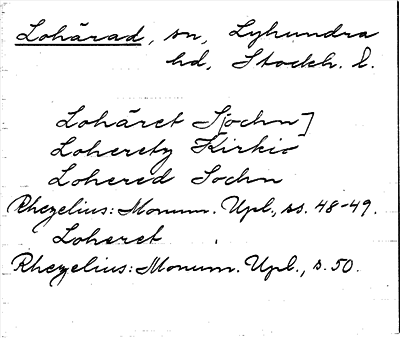 Lohärad, sn, Lyhundra
hd, Stockh. l.
Lohäret S[ochn]
Loheretz Kirkio
Lohered Sochn
Rhezelius: Monum. Upl., ss. 48-49.
Loheret
Rhezelius: Monum. Upl., s. 50.